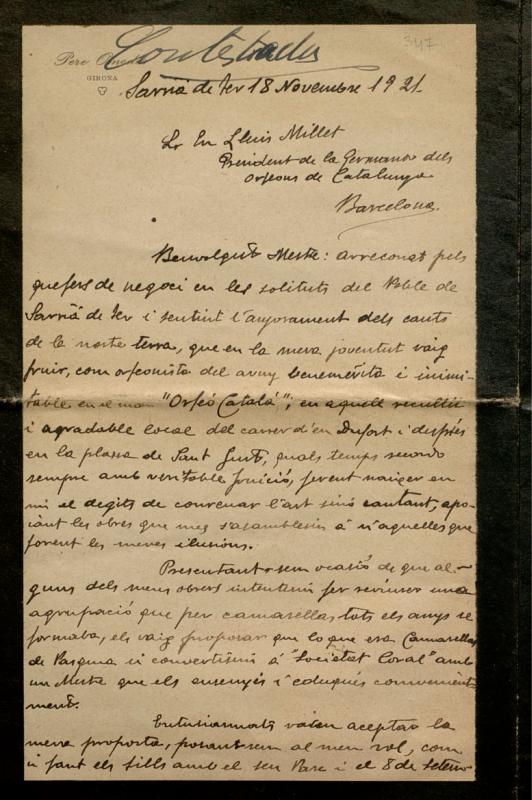 Contestada
347
Pere
GIRONA
Sarriá de Ter 18 Novembre 1921
Sr En Lluis Millet
President de la Germanor dels
Orfeons de Catalunya
Barcelona.
Benvolgut Mestre: arreconat pels
quefers de negoci en les solituts del Poble de
Sarriá de Ter i sentint l'anyorament dels cants
de la nostre terra, que en la meva joventut vaig
fruir, com orfeonista del avuy benemérita i inimi-
table en el mon "Orfeó Catalá"; en aquell recullit
i agradable local del carrer d'en Dufort i després
en la plassa de Sant Just, quals temps recordo
sempre amb veritable fruició, ferent naixer en
mi el desitg de conrear l'art sinó cantant, apo-
iant les obres que mes s'asamblesin á n'aquelles que
forent les meves ilusions.
Presentant-sem ocasió de que al-
guns dels meus obrers intentinin fer reviurer una
agrupació que per camasellas tots els anys se
formaba, els vaig proposar que lo que era Camasellas
de Pasqua si convertisin á "Societat Coral" amb
un Mestre que els ensenyés i eduqués convenient-
ment.
Entusiasmats váren aceptar la
meva proposta, posantsem al meu vol, com
u fant els fills amb el seu Pare i el 8 de Setem-